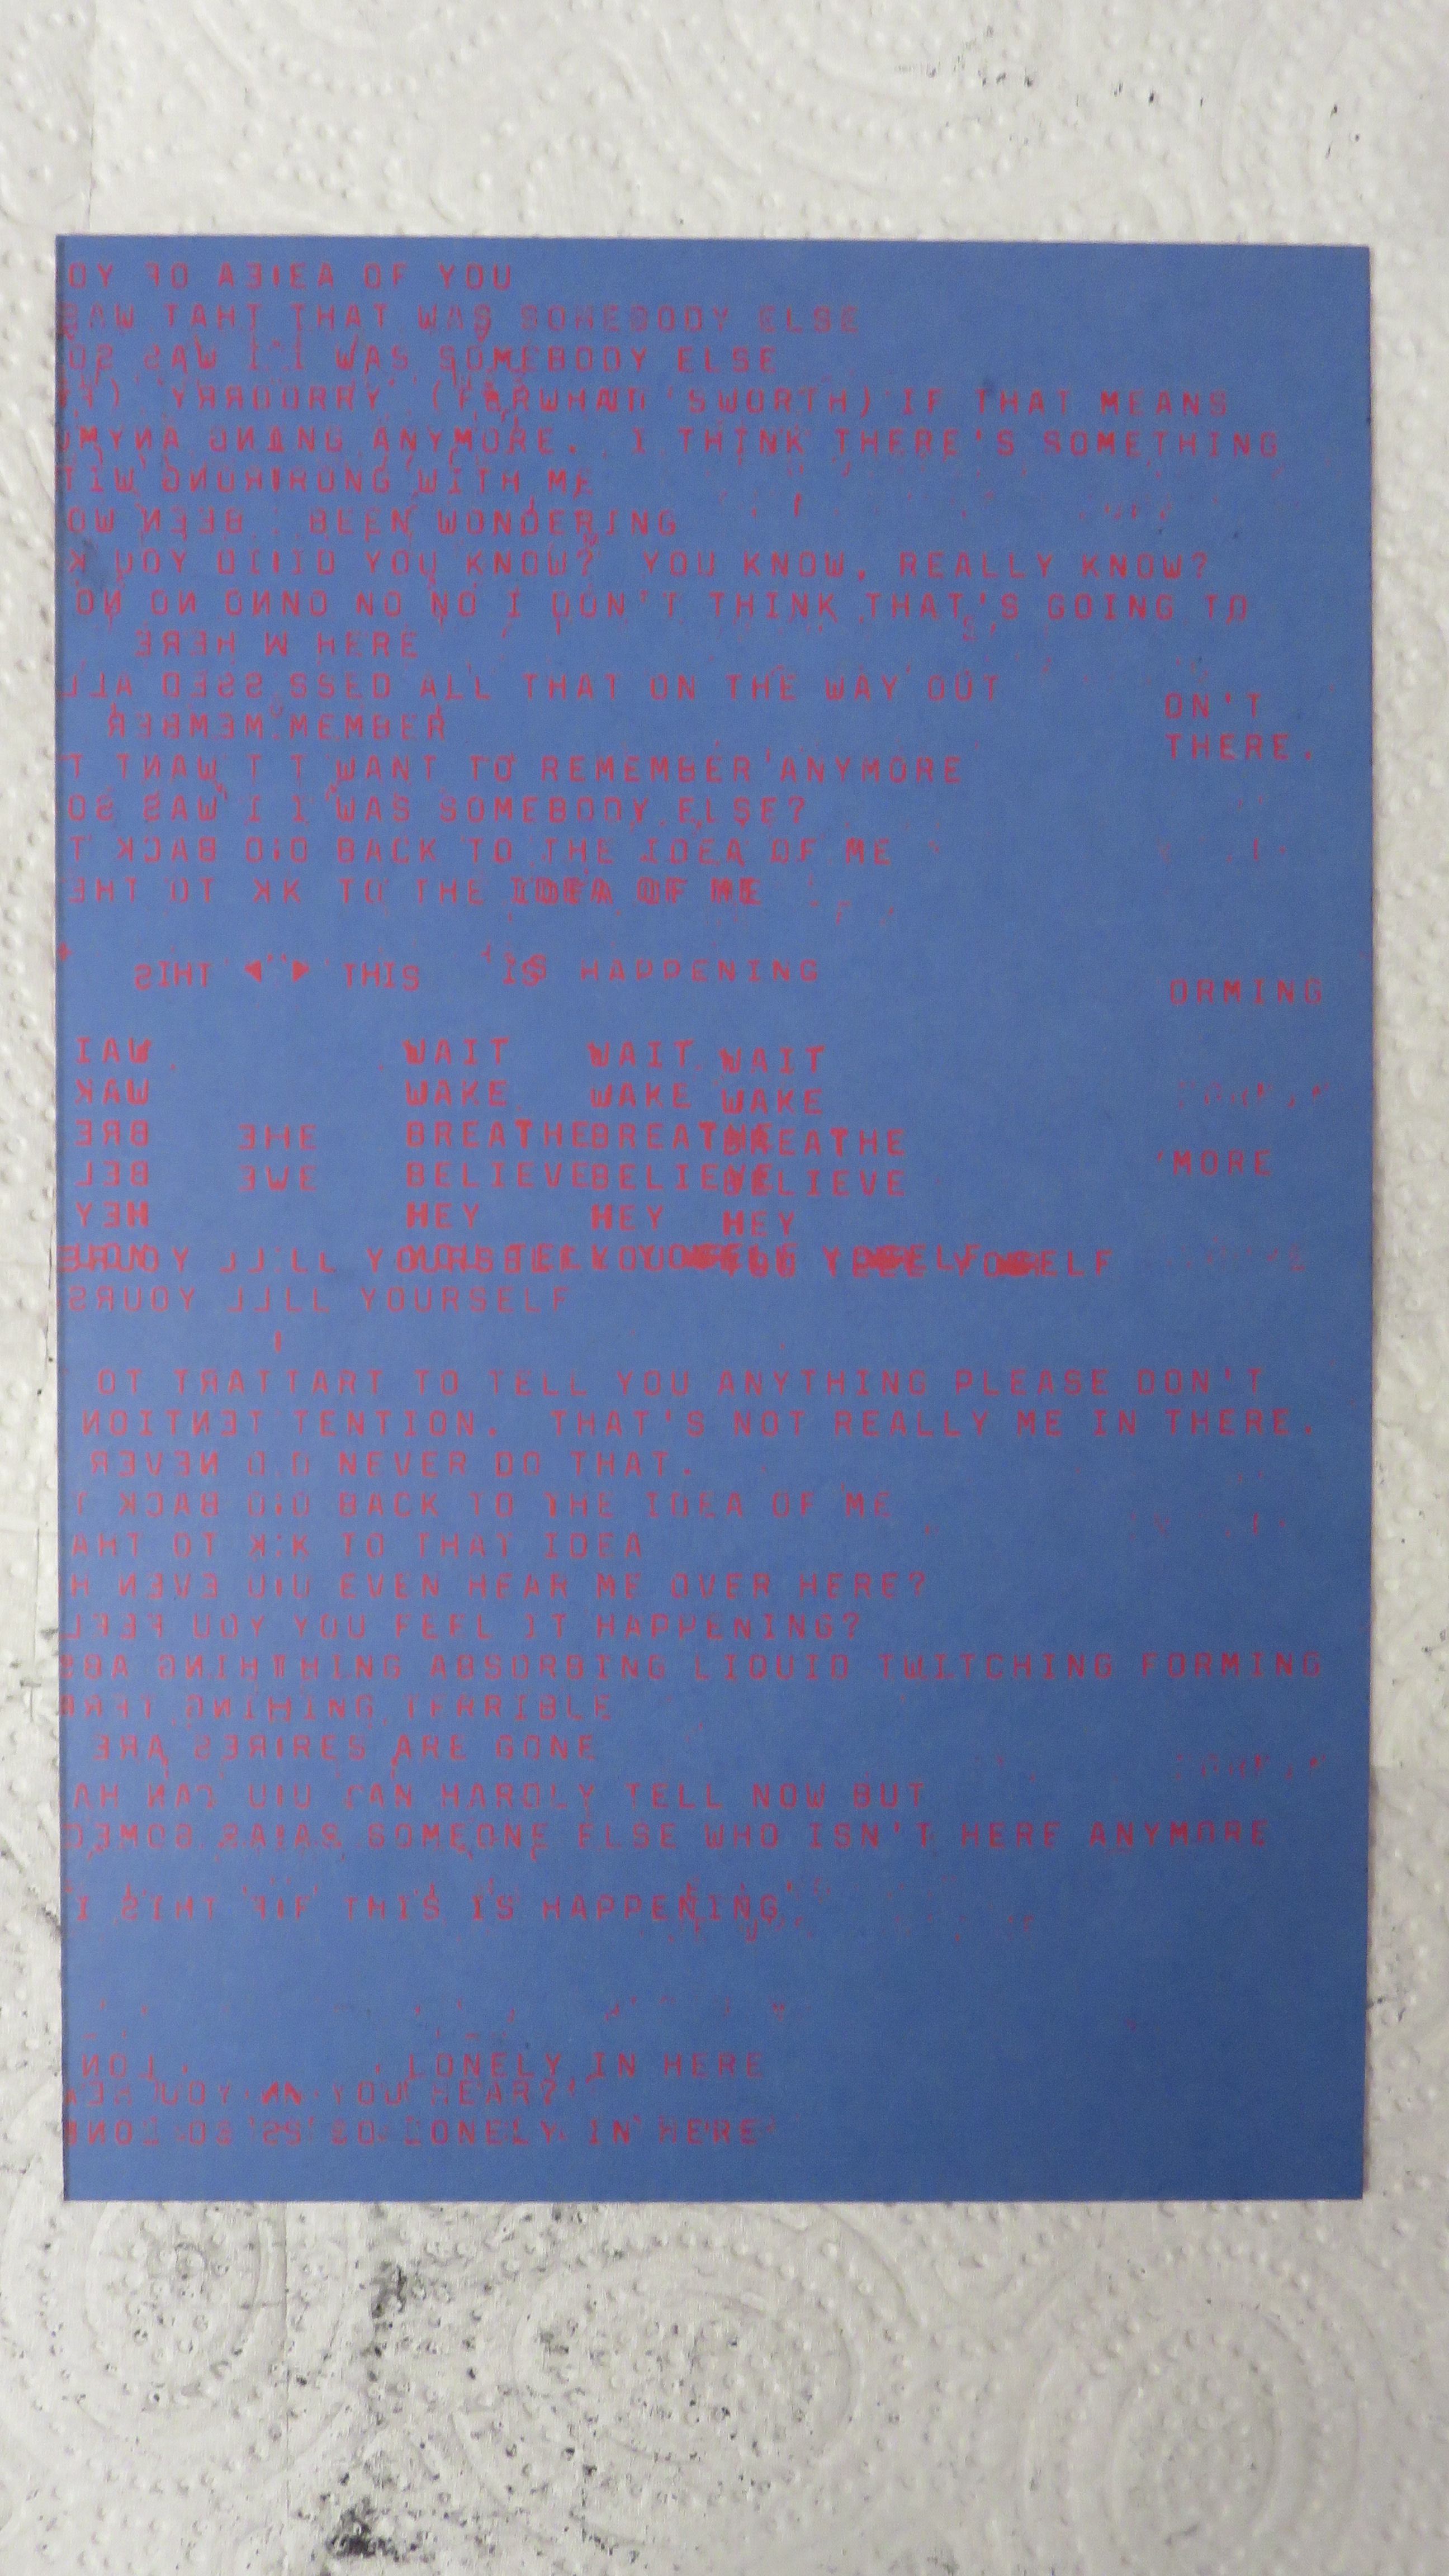 YO FO AEIEA OF YOU
SAW TAHT THAT WAS SOMEBODY ELSE
OS SAW I I WAS SOMEBODY ELSE
YRROORRY (F R WHAT 'S WORTH) IF THAT MEANS
OMYNA GNING ANYMORE. I THINK THERE'S SOMETHING
TIW GNORIRONG WITH ME
OW NEEB : BEEN WONDERING
K UOY DIIID YOU KNOW? YOU KNOW, REALLY KNOW?
ON ON ONNO NO NO I DON'T THINK THAT'S GOING TO
EREH W HERE
LLA DESS SSED ALL THAT ON THE WAY OUT
ON'T
REBMEM MEMBER
THERE.
T TNAW T T WANT TO REMEMBER ANYMORE
OS SAW I I WAS SOMEBODY ELSE?
T KCAB OGIO BACK TO THE IDEA OF ME
EHT OT KK TO THE IDEA OF ME
SIHT ◀ ▶ THIS IS HAPPENING
ORMING
IAW WAIT WAIT WAIT
KAW WAKE WAKE WAKE
ERB EHE BREATHE BREATHE BREATHE
LEB EWE BELIEVE BELIEVE BELIEVE
'MORE
YEH HEY HEY HEY
YOURSELF
SRUOY LLLL YOURSELF
OT TRATTART TO TELL YOU ANYTHING PLEASE DON'T
NOITNET TENTION. THAT'S NOT REALLY ME IN THERE.
REVEN D.D NEVER DO THAT.
T KCAB OGIO BACK TO THE IDEA OF ME
AHT OT K:K TO THAT IDEA
H NEVE UIU EVEN HEAR ME OVER HERE?
LEEF UOY YOU FEEL IT HAPPENING?
SBA GNIHTHING ABSORBING LIQUID TWITCHING FORMING
RRET GNIHING TERRIBLE
ERA SERIRES ARE GONE
AH NAC UIU CAN HARDLY TELL NOW BUT
CEMOS SAIAS SOMEONE ELSE WHO ISN'T HERE ANYMORE
I SIHT FIF THIS IS HAPPENING
NOL LONELY IN HERE
EH UOY NN YOU HEAR?
NOL OS 'SS SO LONELY IN HERE